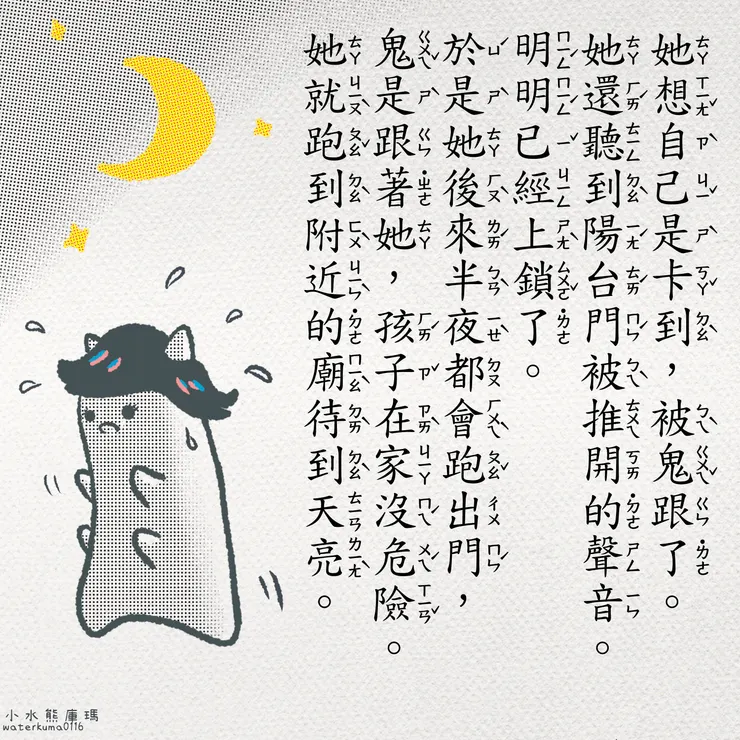 她想自己是卡到，被鬼跟了。
她還聽到陽台門被推開的聲音。
明明已經上鎖了。
於是她後來半夜都會跑出門，
鬼是跟著她，孩子在家沒危險。
她就跑到附近的廟待到天亮。
小水熊庫瑪
waterkuma0116